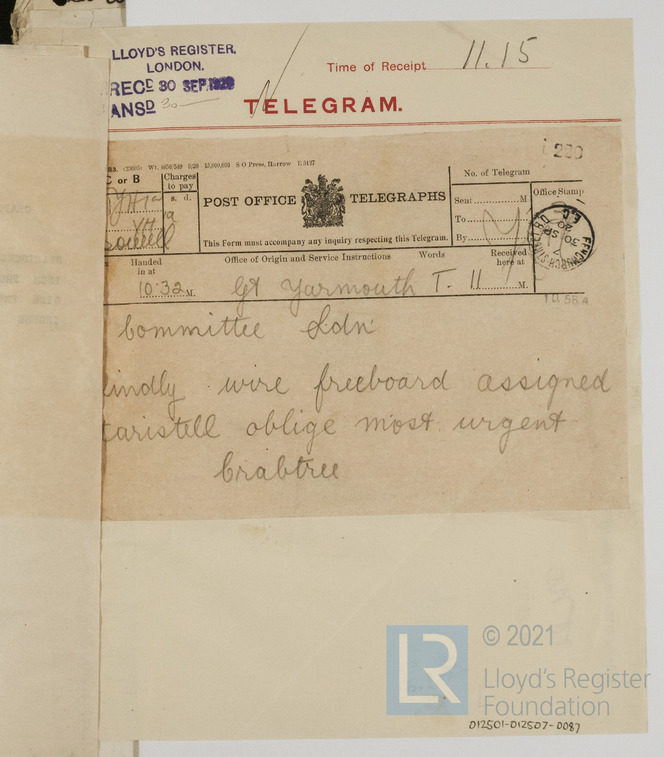 LLOYD'S REGISTER,
LONDON.
RECD 30 SEP. 1920
ANSD 30
Time of Receipt 11.15
TELEGRAM.
230
C or B
Charges to pay
s. d.
POST OFFICE TELEGRAPHS
This Form must accompany any inquiry respecting this Telegram.
No. of Telegram
Sent M
To
By
Office Stamp
FENCHURCH STREET B.O.
E.C
30 SP
20
Handed in at
Office of Origin and Service Instructions
Words
Received here at
10.32 M.
Gt Yarmouth T. 11 M.
Committee Ldn
indly wire freeboard assigned
taristell oblige most urgent
Crabtree
LR
© 2021
Lloyd's Register
Foundation
012501-012507-0087